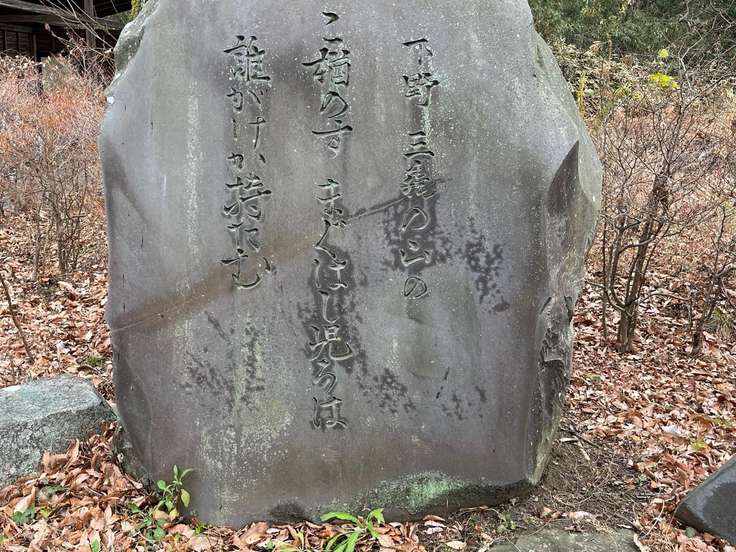 下野 三毳の山の
こ楢のす まぐはし児ろは
誰がけか持たむ